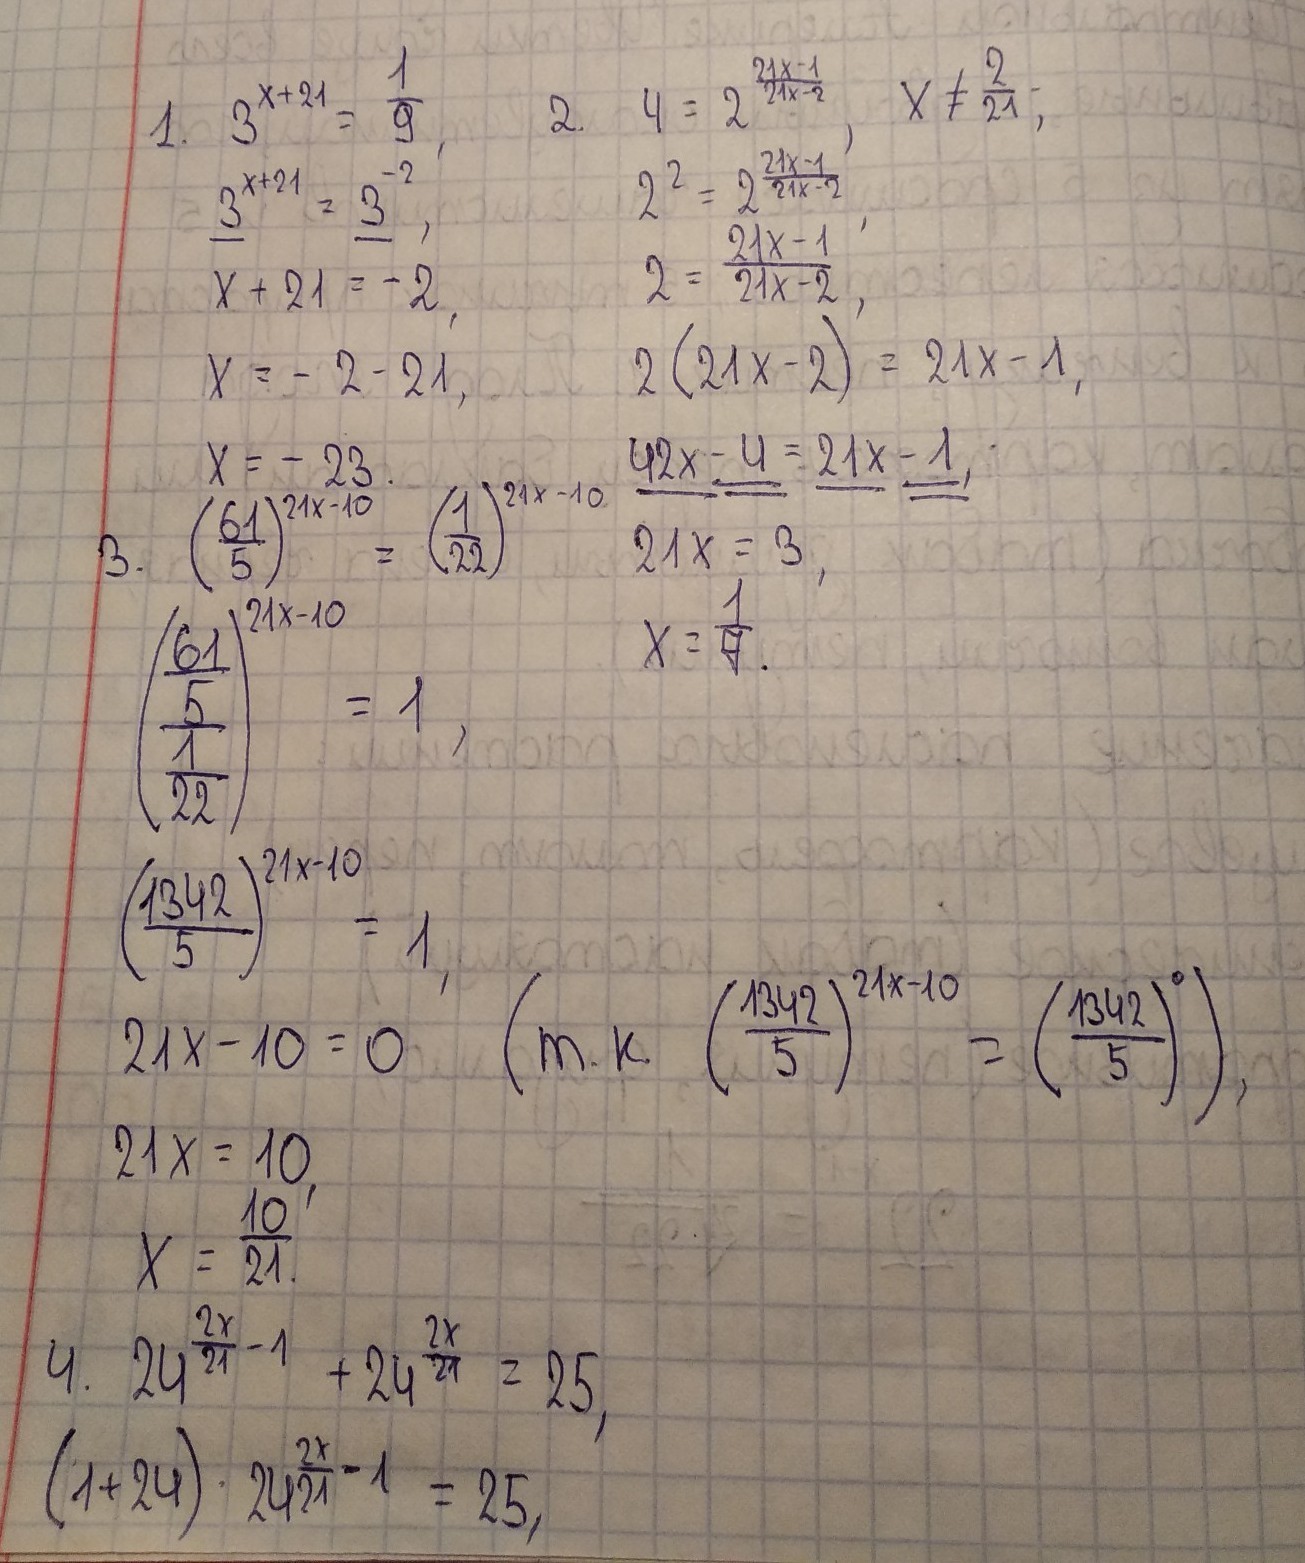 1. 3^{x+21} = \frac{1}{9},
3^{x+21} = 3^{-2},
x + 21 = -2,
x = -2 - 21,
x = -23.
2. 4 = 2^{\frac{21x-1}{21x-2}}, x ≠ \frac{2}{21};
2^2 = 2^{\frac{21x-1}{21x-2}},
2 = \frac{21x-1}{21x-2},
2(21x-2) = 21x-1,
42x - 4 = 21x - 1,
21x = 3,
x = \frac{1}{7}.
3. (\frac{61}{5})^{21x-10} = (\frac{1}{22})^{21x-10}
(\frac{\frac{61}{5}}{\frac{1}{22}})^{21x-10} = 1,
(\frac{1342}{5})^{21x-10} = 1,
21x - 10 = 0 (т.к. (\frac{1342}{5})^{21x-10} = (\frac{1342}{5})^0),
21x = 10,
x = \frac{10}{21}.
4. 24^{\frac{2x}{21}-1} + 24^{\frac{2x}{21}} = 25,
(1+24) · 24^{\frac{2x}{21}-1} = 25,